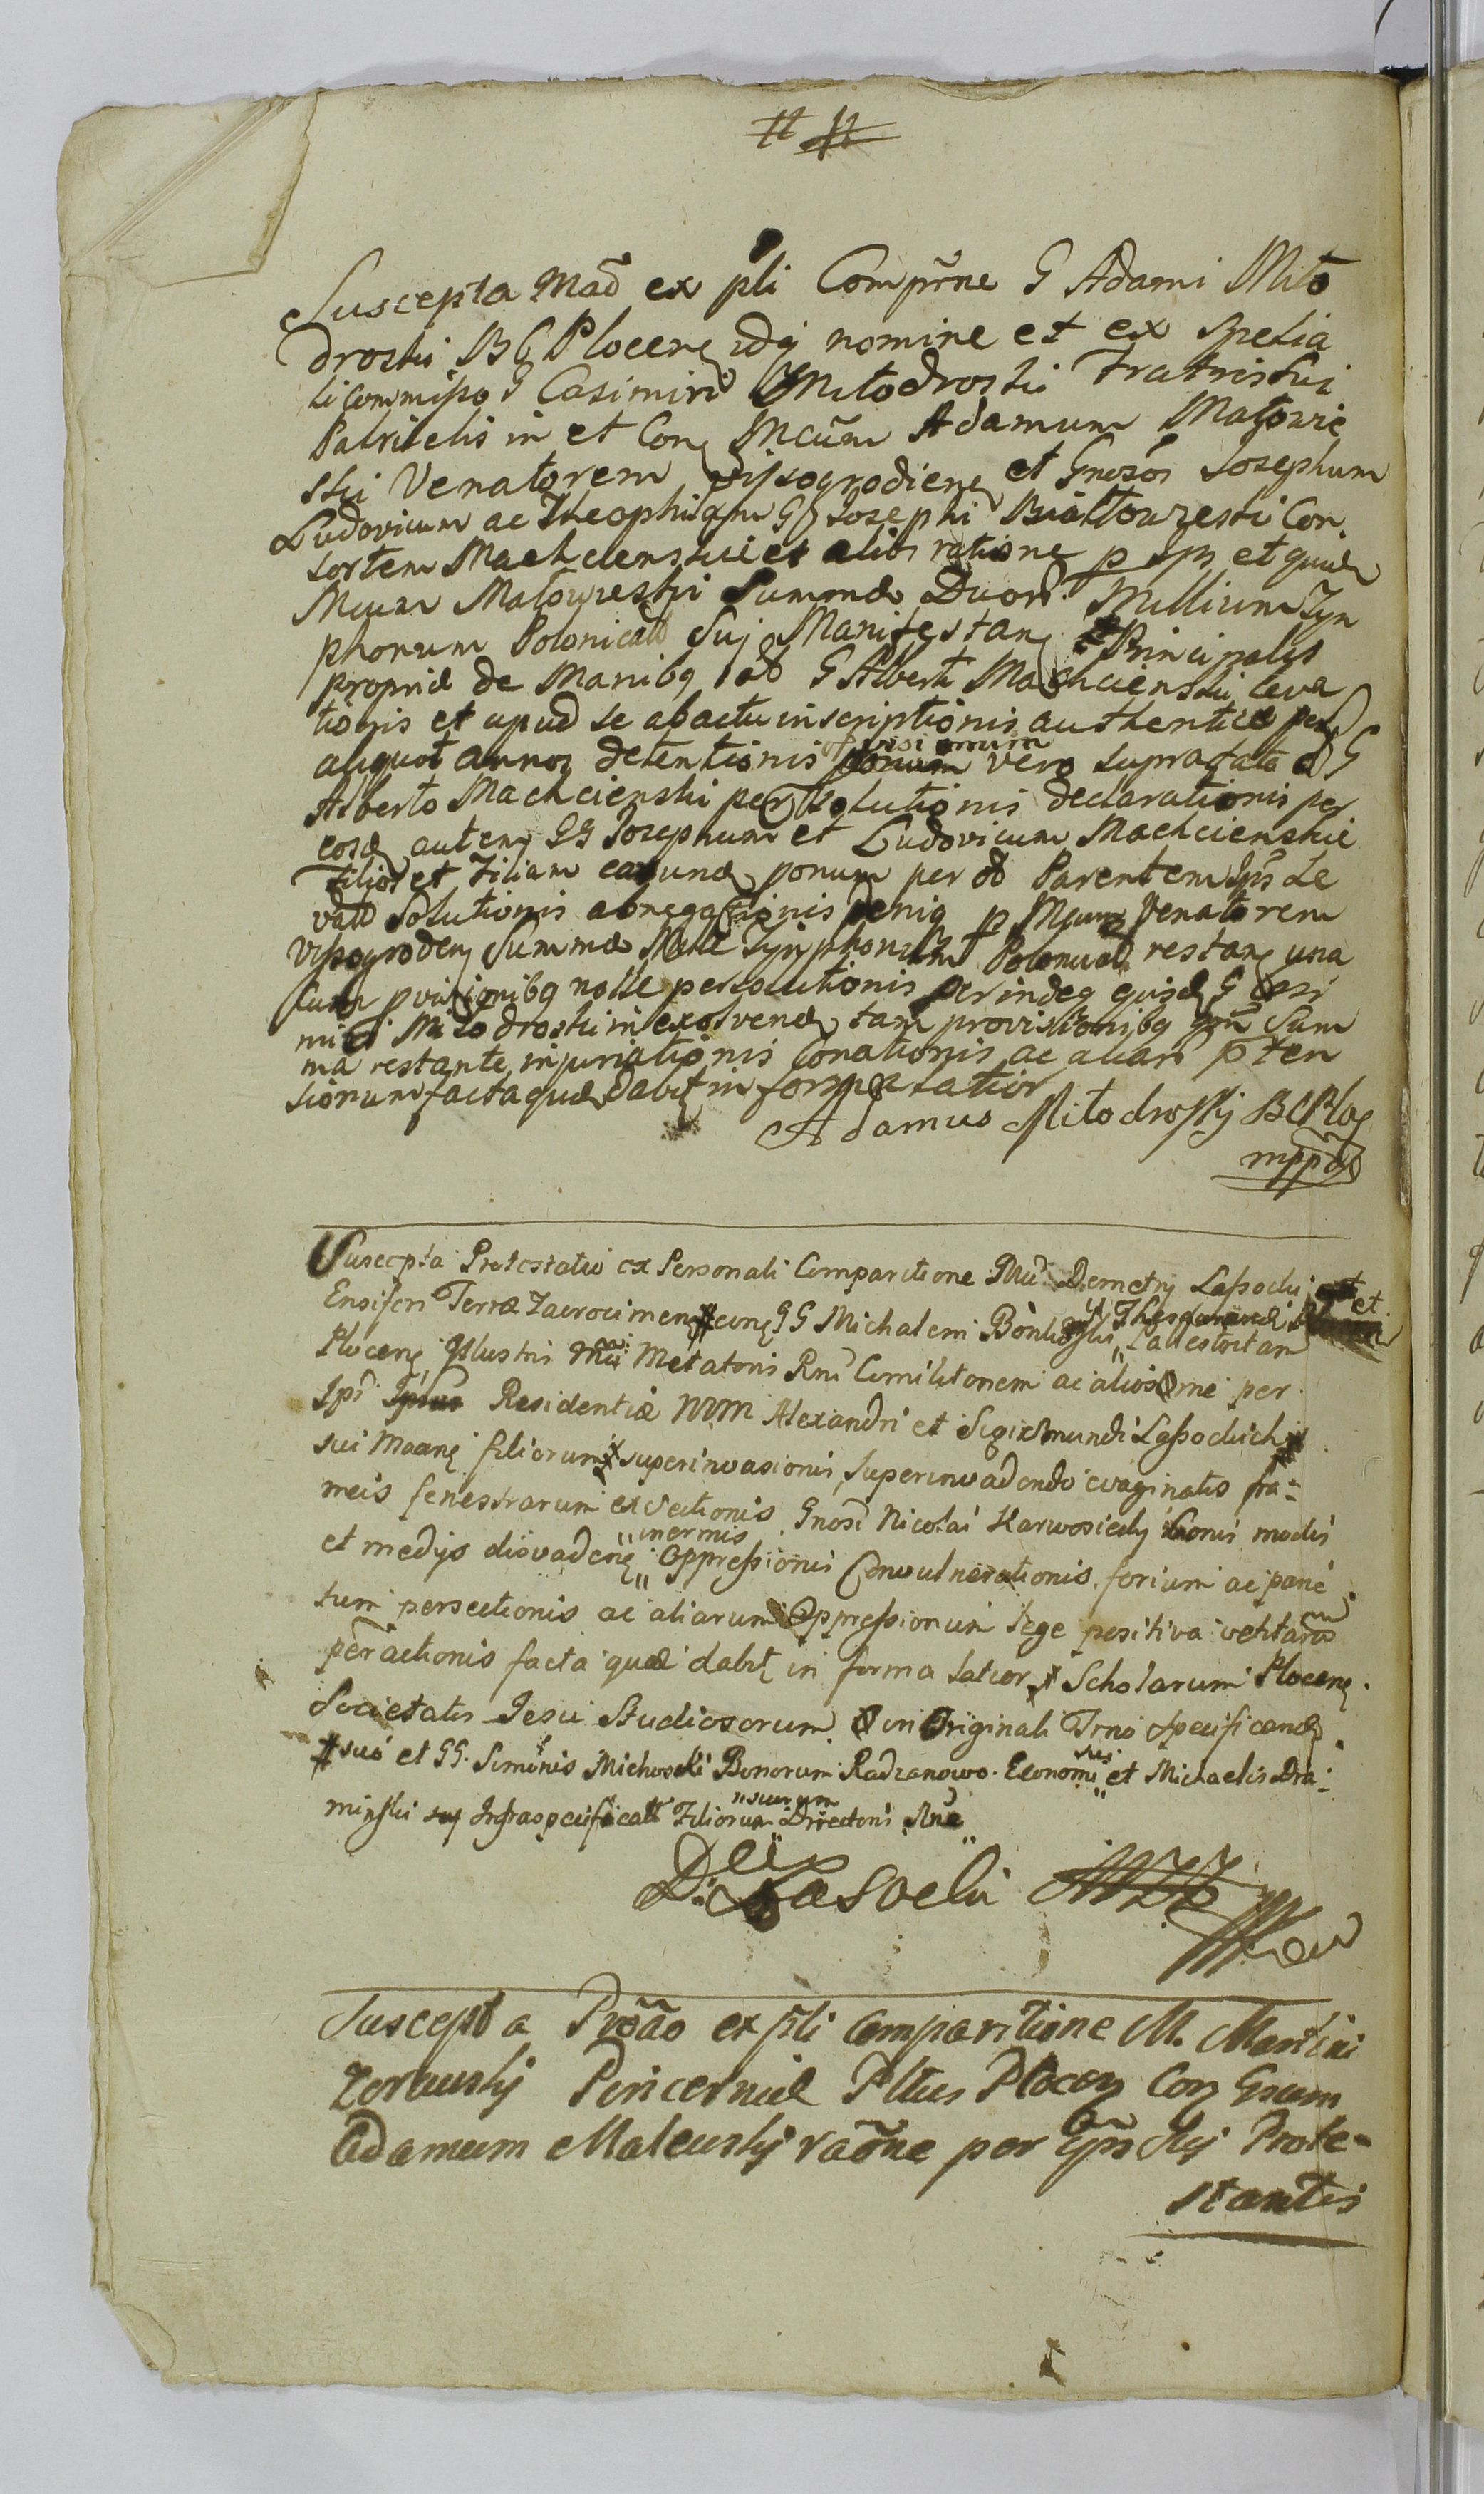 Suscepta Mão ex pli Comprne G Adami Miło
droski BG Plocen idq nomine et ex Spetia
li Commisso G Casimiri Miłodroski Fratris Sui
Patruelis in et Con Mcum Adamum Małowie
ski Venatorem Wyssogrodien et Gnosos Josephum
Ludovicum ac Theophilam G Josephi Białłowzeski Con
sortem Machcienskie et alios ratione p Ips et quid
Mcum Małowieski Summæ Duor Millium Tyn
phonum Polonicall Suj Manifestan Principalis
propriæ de Manibq G Alberti Machcienski leva
tionis et apud se ab actu inscriptionis authenticæ per
aliquot annos detentionis provisionum vero supra data a G
Alberto Machcienski per solutionis declarationis per
eosd autem GG Josephum et Ludovicum Machcienskie
filios et Filiam earund ponum per Parentem Ips Le
vatt Solutionis abnegationis deniq p Mcum Venatorem
Wyssogroden Summæ Mille Tynphonum Polonical restan una
cum provisionibq nolle persolutionis perindeq ejusd G Casi
miri Miłodroski in exolvend tam provisionibq qm Sum
ma restante injuriationis Conationis ac aliar pten
sionum facta quæ dabit in forma Latior
Adamus Miłodroskj BGPloc
mppa
Suscepta Protestatio ex Personali Comparitione Mci Demetrij Lassocki et
Ensiferi Terræ Zacrocimen # con GG Michalem Bonkoski Palestritam
Plocen Illustris Mci Metatoris Rni Comilitonem ac alios Ome per
Ips Residentiæ MM Alexandri et Sigismundi Lassockich #
sui Maanq filiorum # superinvasionis, superinvadendo evaginatis fra=
meis fenestrarum exsectionis Gnosi Nicolai Karwosiecky bonis modis
et medijs disvaden " inermis " Oppressionis Convulnerationis forium ac parie
tum persectionis ac aliarum Oppressionum lege positiva vetitarum
peractionis facta quæ dabit in forma latior # Scholarum Plocen.
Societatis Jesu Studiosorum in Originali Trno specificand
# suo et GG. Simonis Michoski Bonorum Radzanowo Economi sui et Michaelis Dra=
minski suj Infraspecificatt Filiorum " suorum " Directoris
D: Lasocki MZZ
Suscepta Prõão ex pli Comparitione M. Martini
Zorawskj Pincernidæ Pltus Plocen Con Gsum
Adamum Maleuskj raõne per Ipm Mcj Prote=
stantis